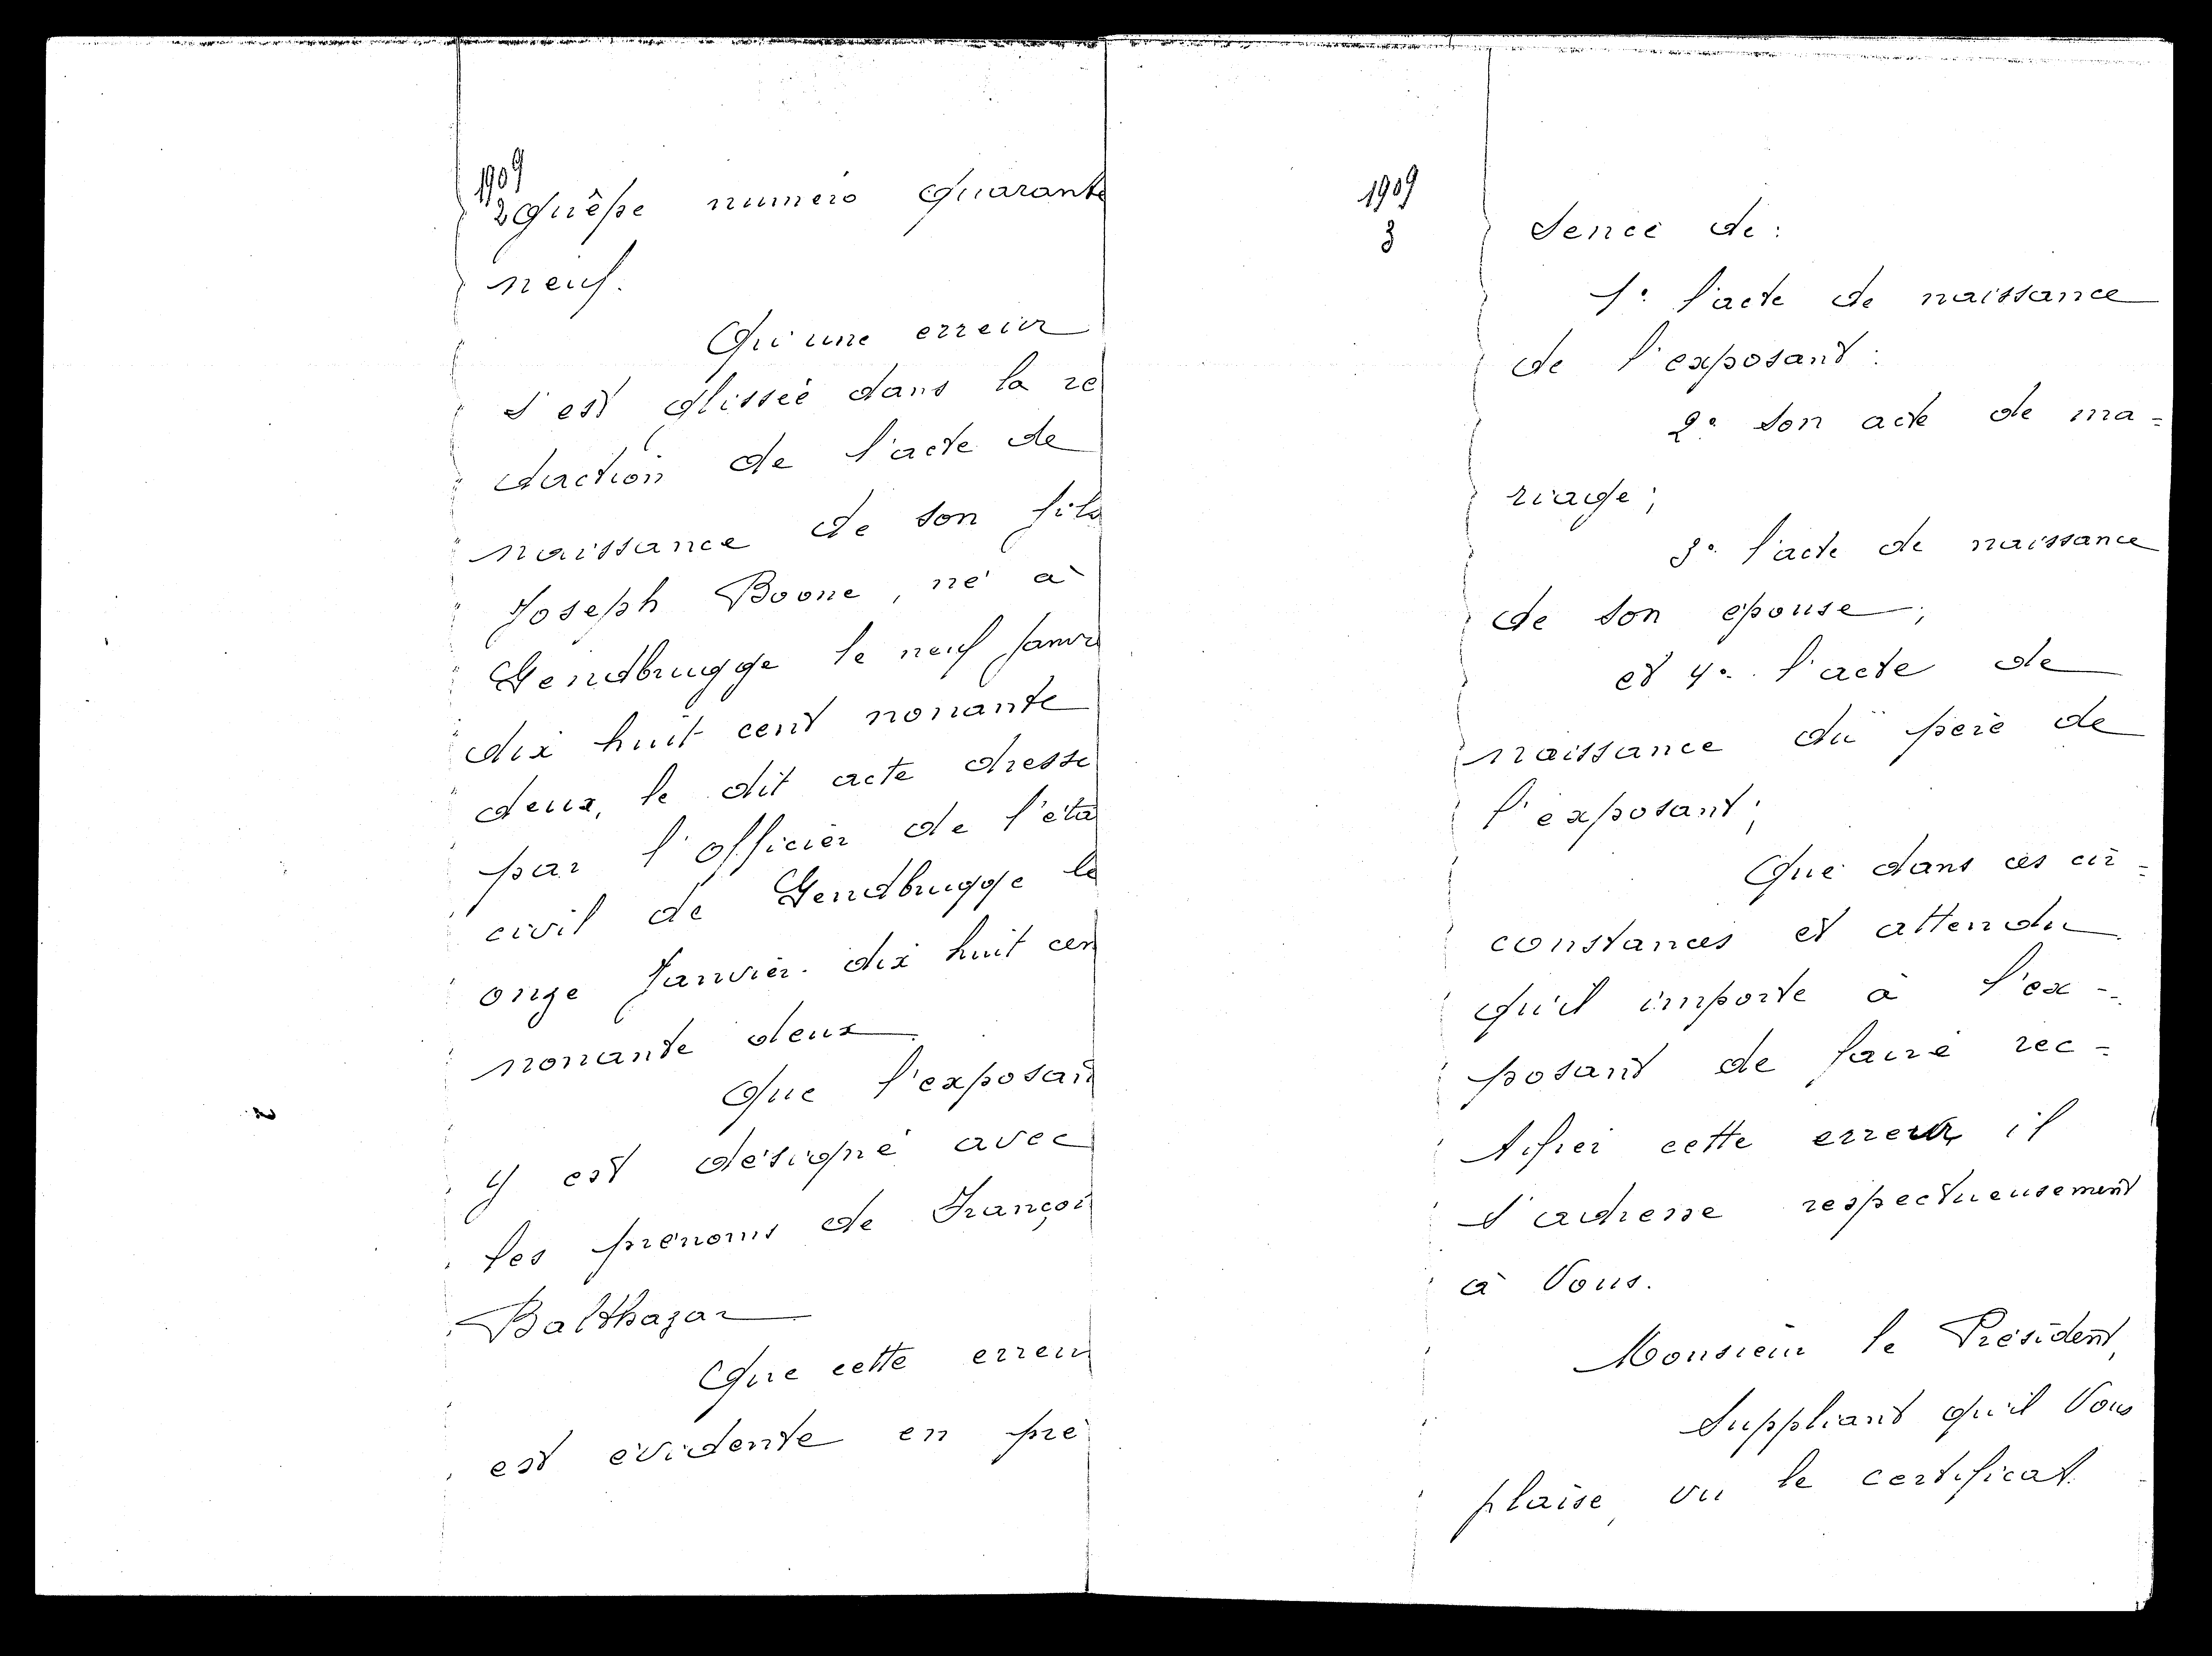 1909
2
Guêpe numero Quarante
neuf.
Qu'une erreur
s'est glissée dans la re
daction de l'acte de
naissance de son fils
Joseph Boone, né à
Gendbrugge le neuf Janvi
dix huit cent nonante
deux, le dit acte dressé
par l'officier de l'éta
civil de Gendbrugge le
onze Janvier dix huit cen
nonante deux.
Que l'exposan
y est désigné avec
les prénoms de Françoi
Balthazar
Que cette erreu
est évidente en pré
1909
3
sence de:
1° l'acte de naissance
de l'exposant:
2° son acte de ma=
riage;
3° l'acte de naissance
de son épouse;
et 4° l'acte de
naissance du père de
l'exposant;
Que dans ces cir=
constances et attendu
qu'il importe à l'ex-
posant de faire rec=
tifier cette erreur, il
s'adresse respectueusement
à Vous.
Monsieur le Président,
Suppliant qu'il Vous
plaise, vu le certificat